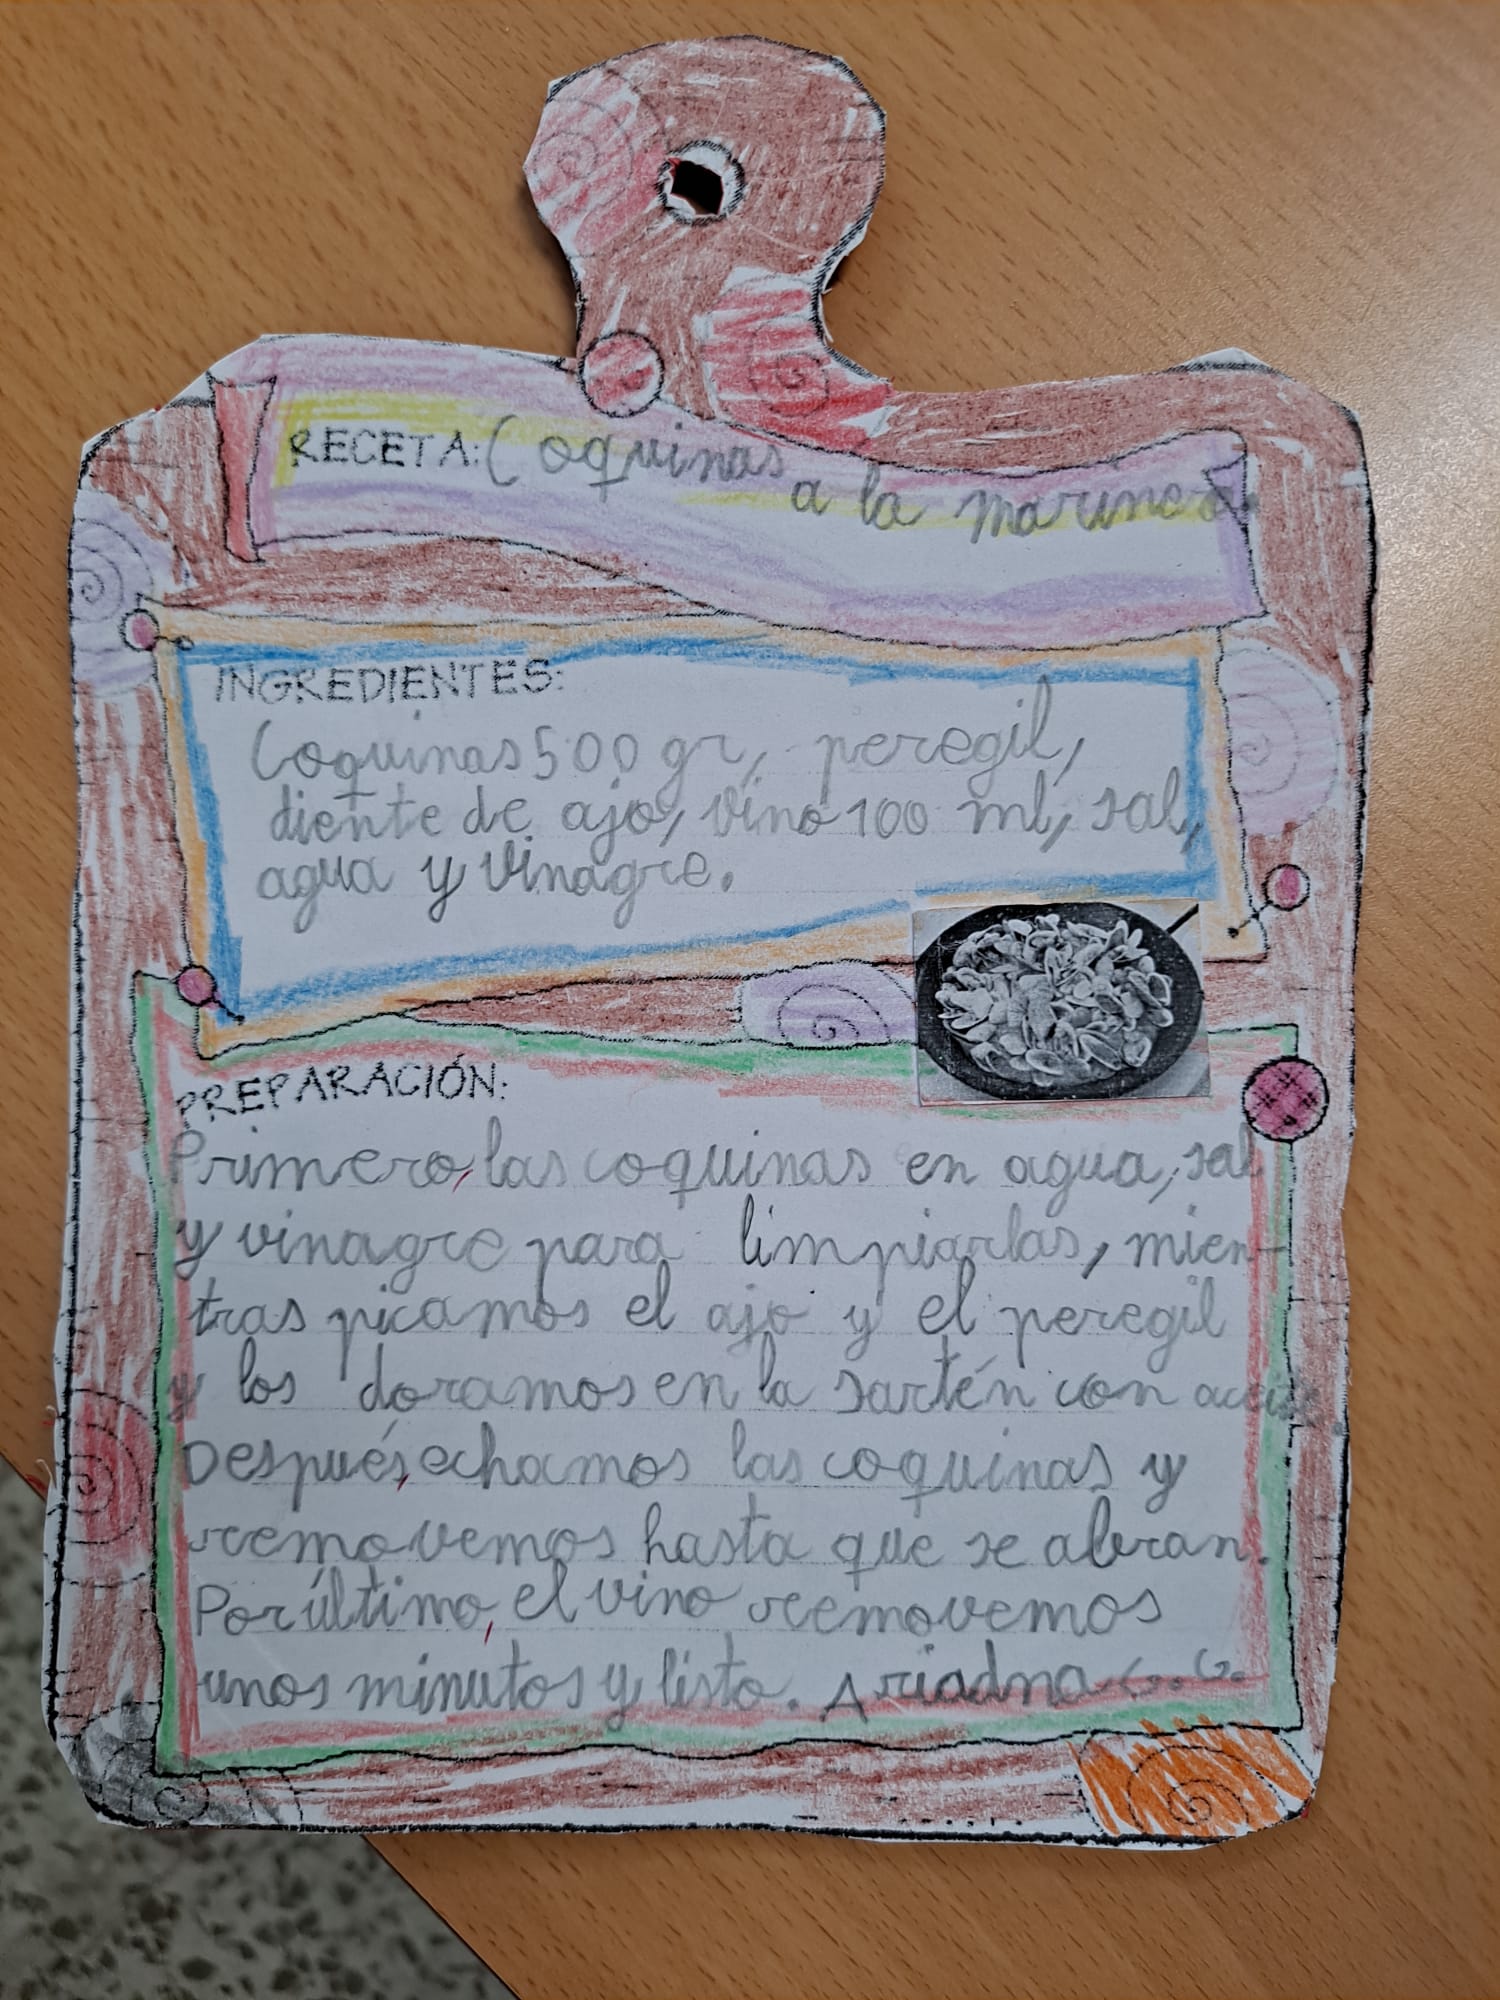 RECETA: Coquinas
a la marinera.
INGREDIENTES:
Coquinas 500 gr, peregil,
diente de ajo, vino 100 ml, sal,
agua y vinagre.
PREPARACIÓN:
Primero, las coquinas en agua, sal
y vinagre para limpiarlas, mien-
tras picamos el ajo y el peregil
y los doramos en la sartén con aceite.
Después, echamos las coquinas y
removemos hasta que se abran.
Por último, el vino removemos
unos minutos y listo. Ariadna G. G.